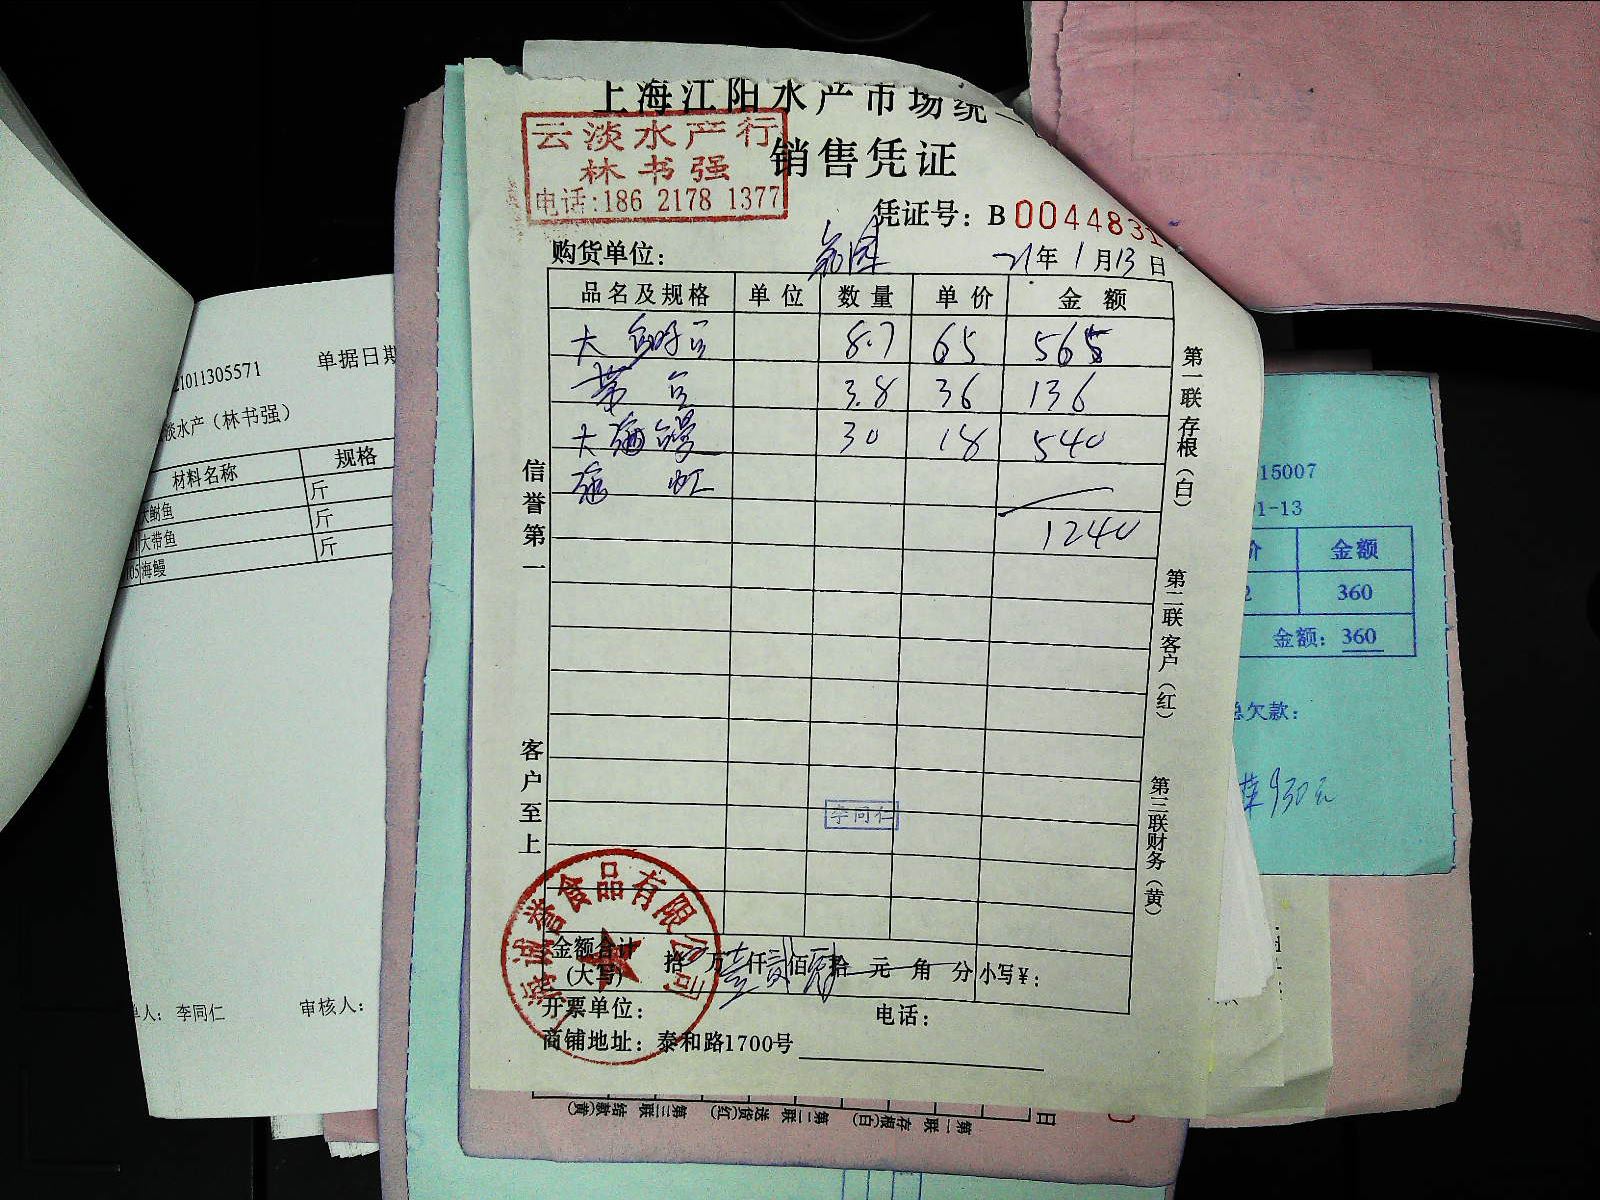 上海江阳水产市场统一
销售凭证
云淡水产行
林书强
电话:186 2178 1377
凭证号: B 0044831
购货单位:
21年 1月 13日
品名及规格 单位 数量 单价 金额
大 8.7 65 565
带 3.8 36 136
大海鳗 30 18 540
1240
信誉第一
客户至上
第一联存根(白)
第二联客户(红)
第三联财务(黄)
李同仁
海诚誉食品有限公司
金额合计(大写) 拾 万壹仟贰佰 拾 元 角 分 小写¥:
开票单位: 电话:
商铺地址: 泰和路1700号
21011305571 单据日期
淡水产(林书强)
材料名称 规格
大鲥鱼 斤
大带鱼 斤
05 海鳗 斤
单人: 李同仁 审核人:
15007
01-13
价 金额
2 360
金额: 360
总欠款:
930元
第一联 存根(白) 第二联 送货(红) 第三联 结款(黄)
日